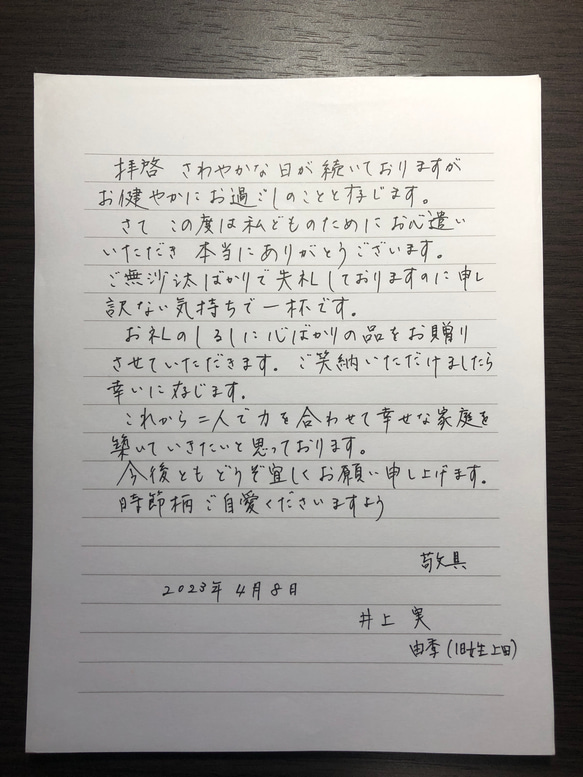 拝啓 さわやかな日が続いておりますが
お健やかにお過ごしのことと存じます。
さて この度は私どものためにお心遣い
いただき 本当にありがとうございます。
ご無沙汰ばかりで失礼しておりますのに申し
訳ない気持ちで一杯です。
お礼のしるしに心ばかりの品をお贈り
させていただきます。ご笑納いただけましたら
幸いに存じます。
これから二人で力を合わせて幸せな家庭を
築いていきたいと思っております。
今後ともどうぞ宜しくお願い申し上げます。
時節柄ご自愛くださいますよう
敬具
2023年4月8日
井上 実
由季(旧姓上田)